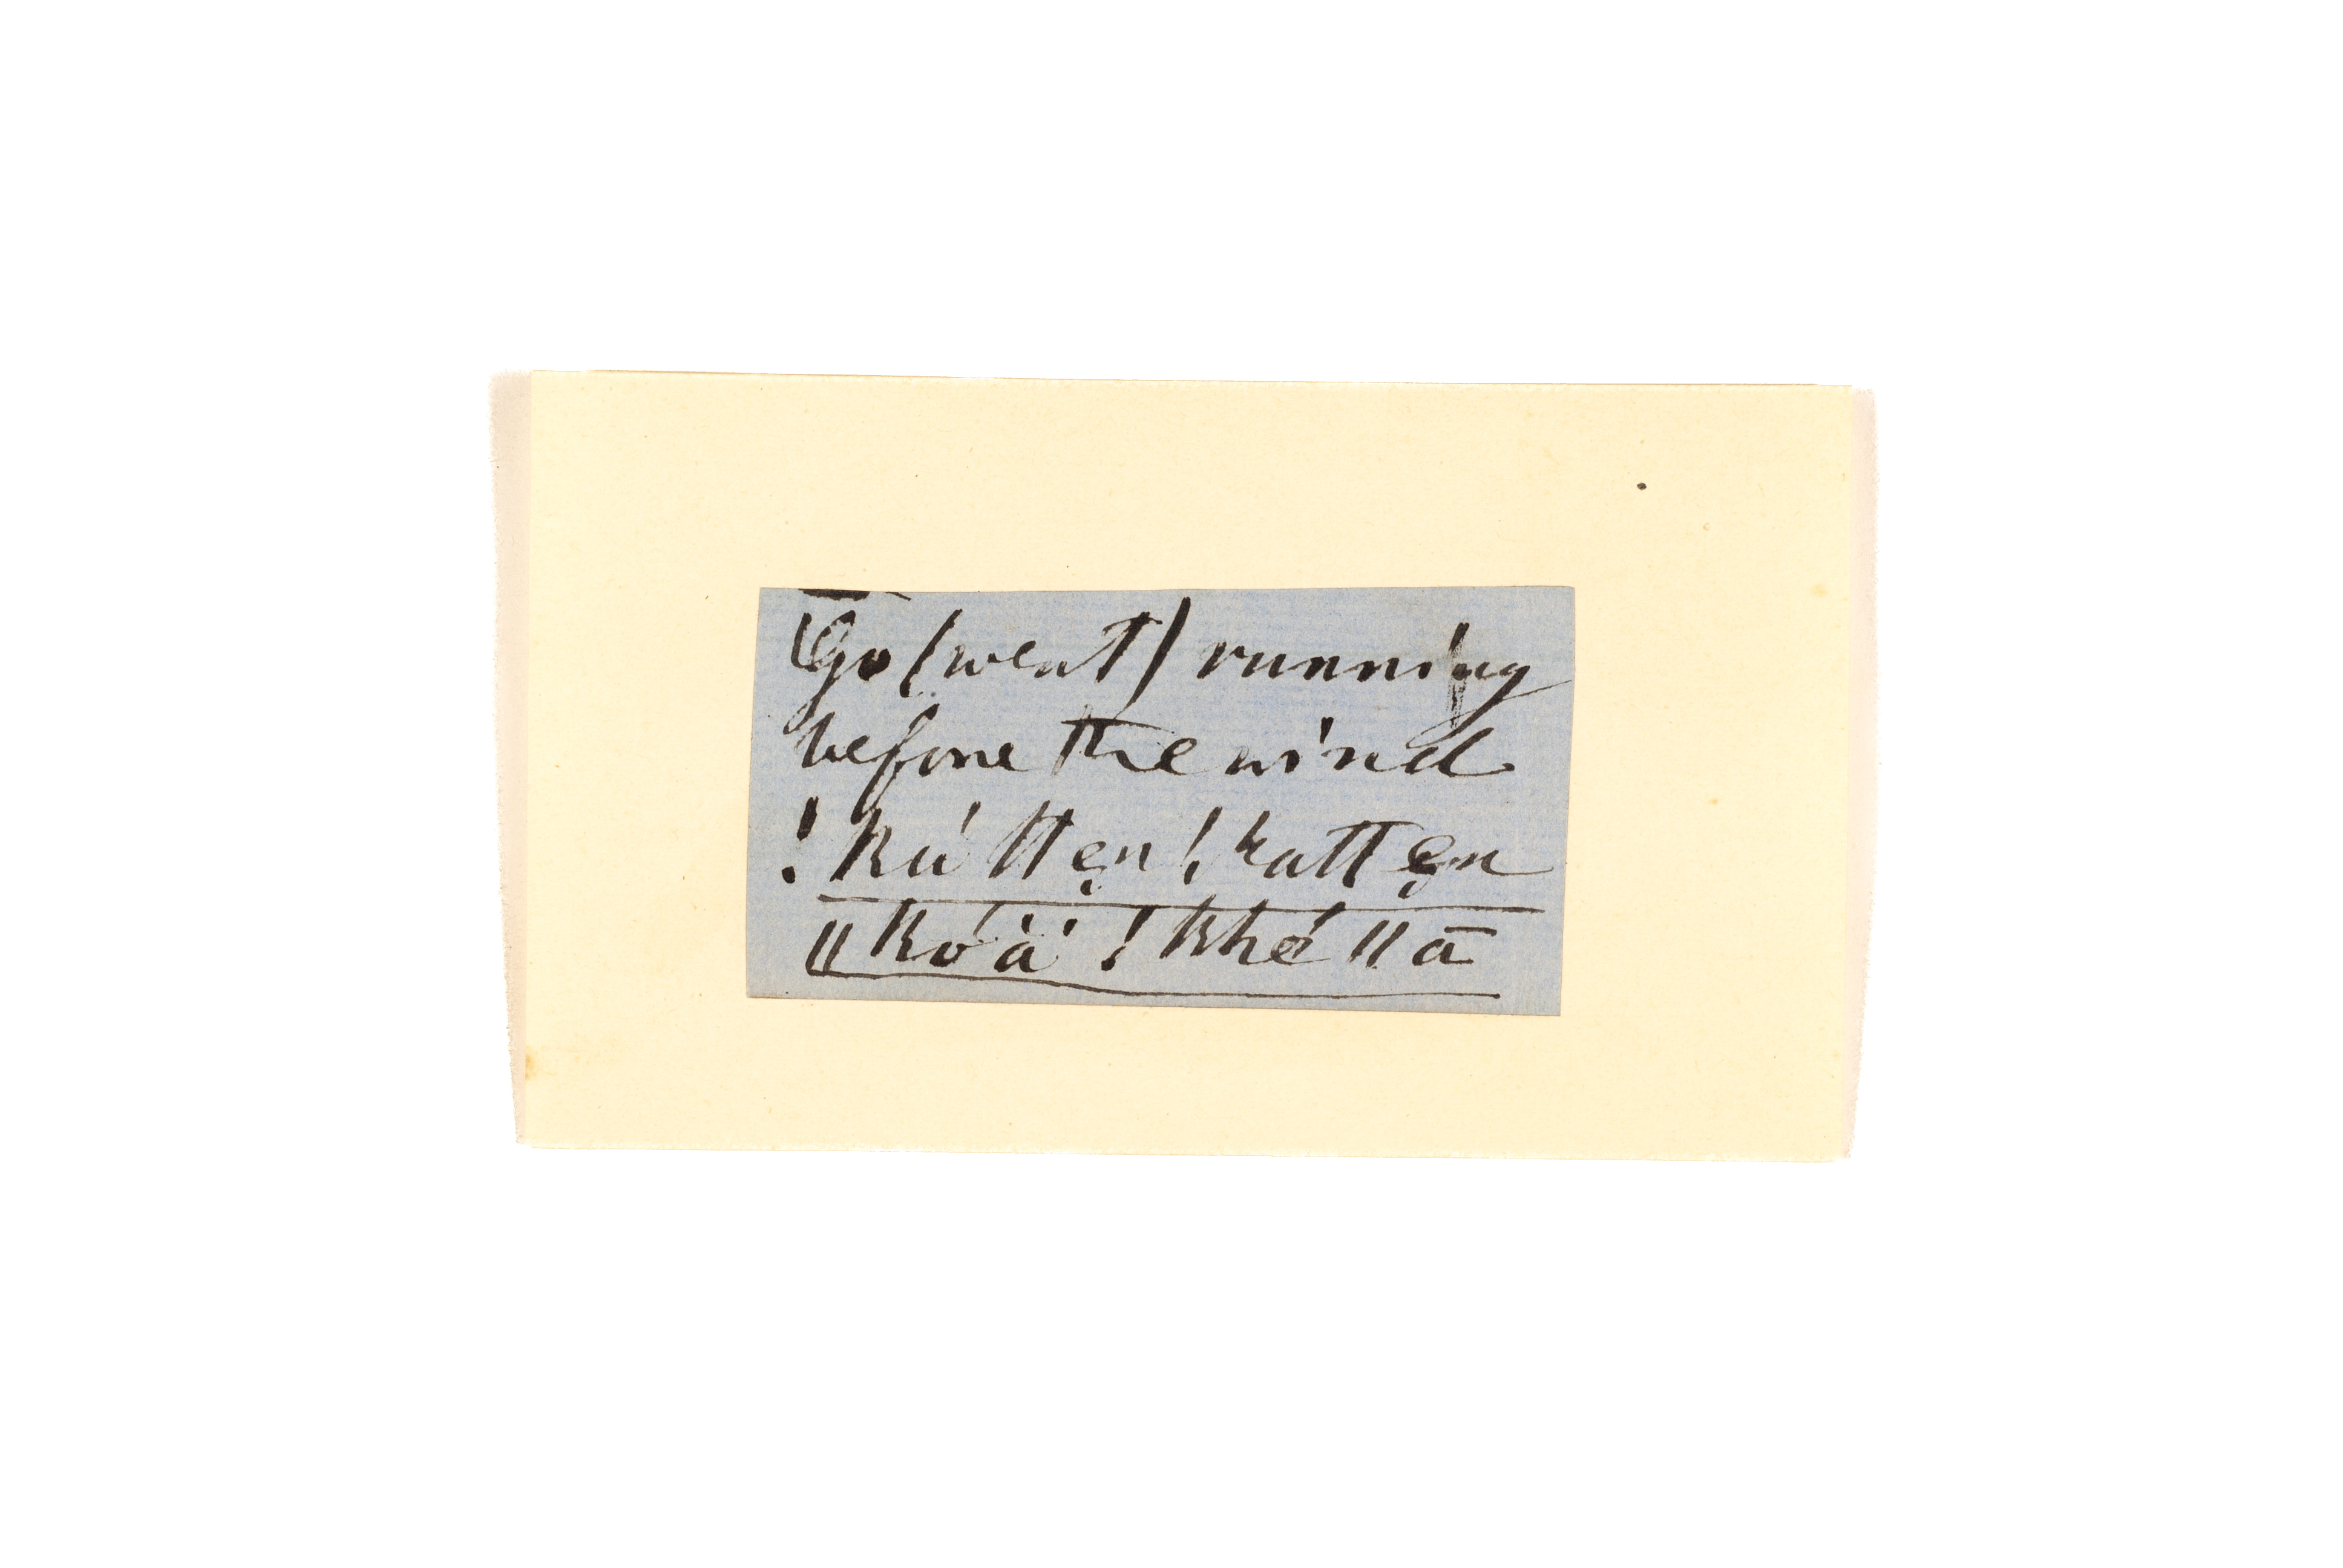 Go (went) running
before the wind
!kú tten !kattẹn
ǁkó̇ȧ̈ !khé ǁā